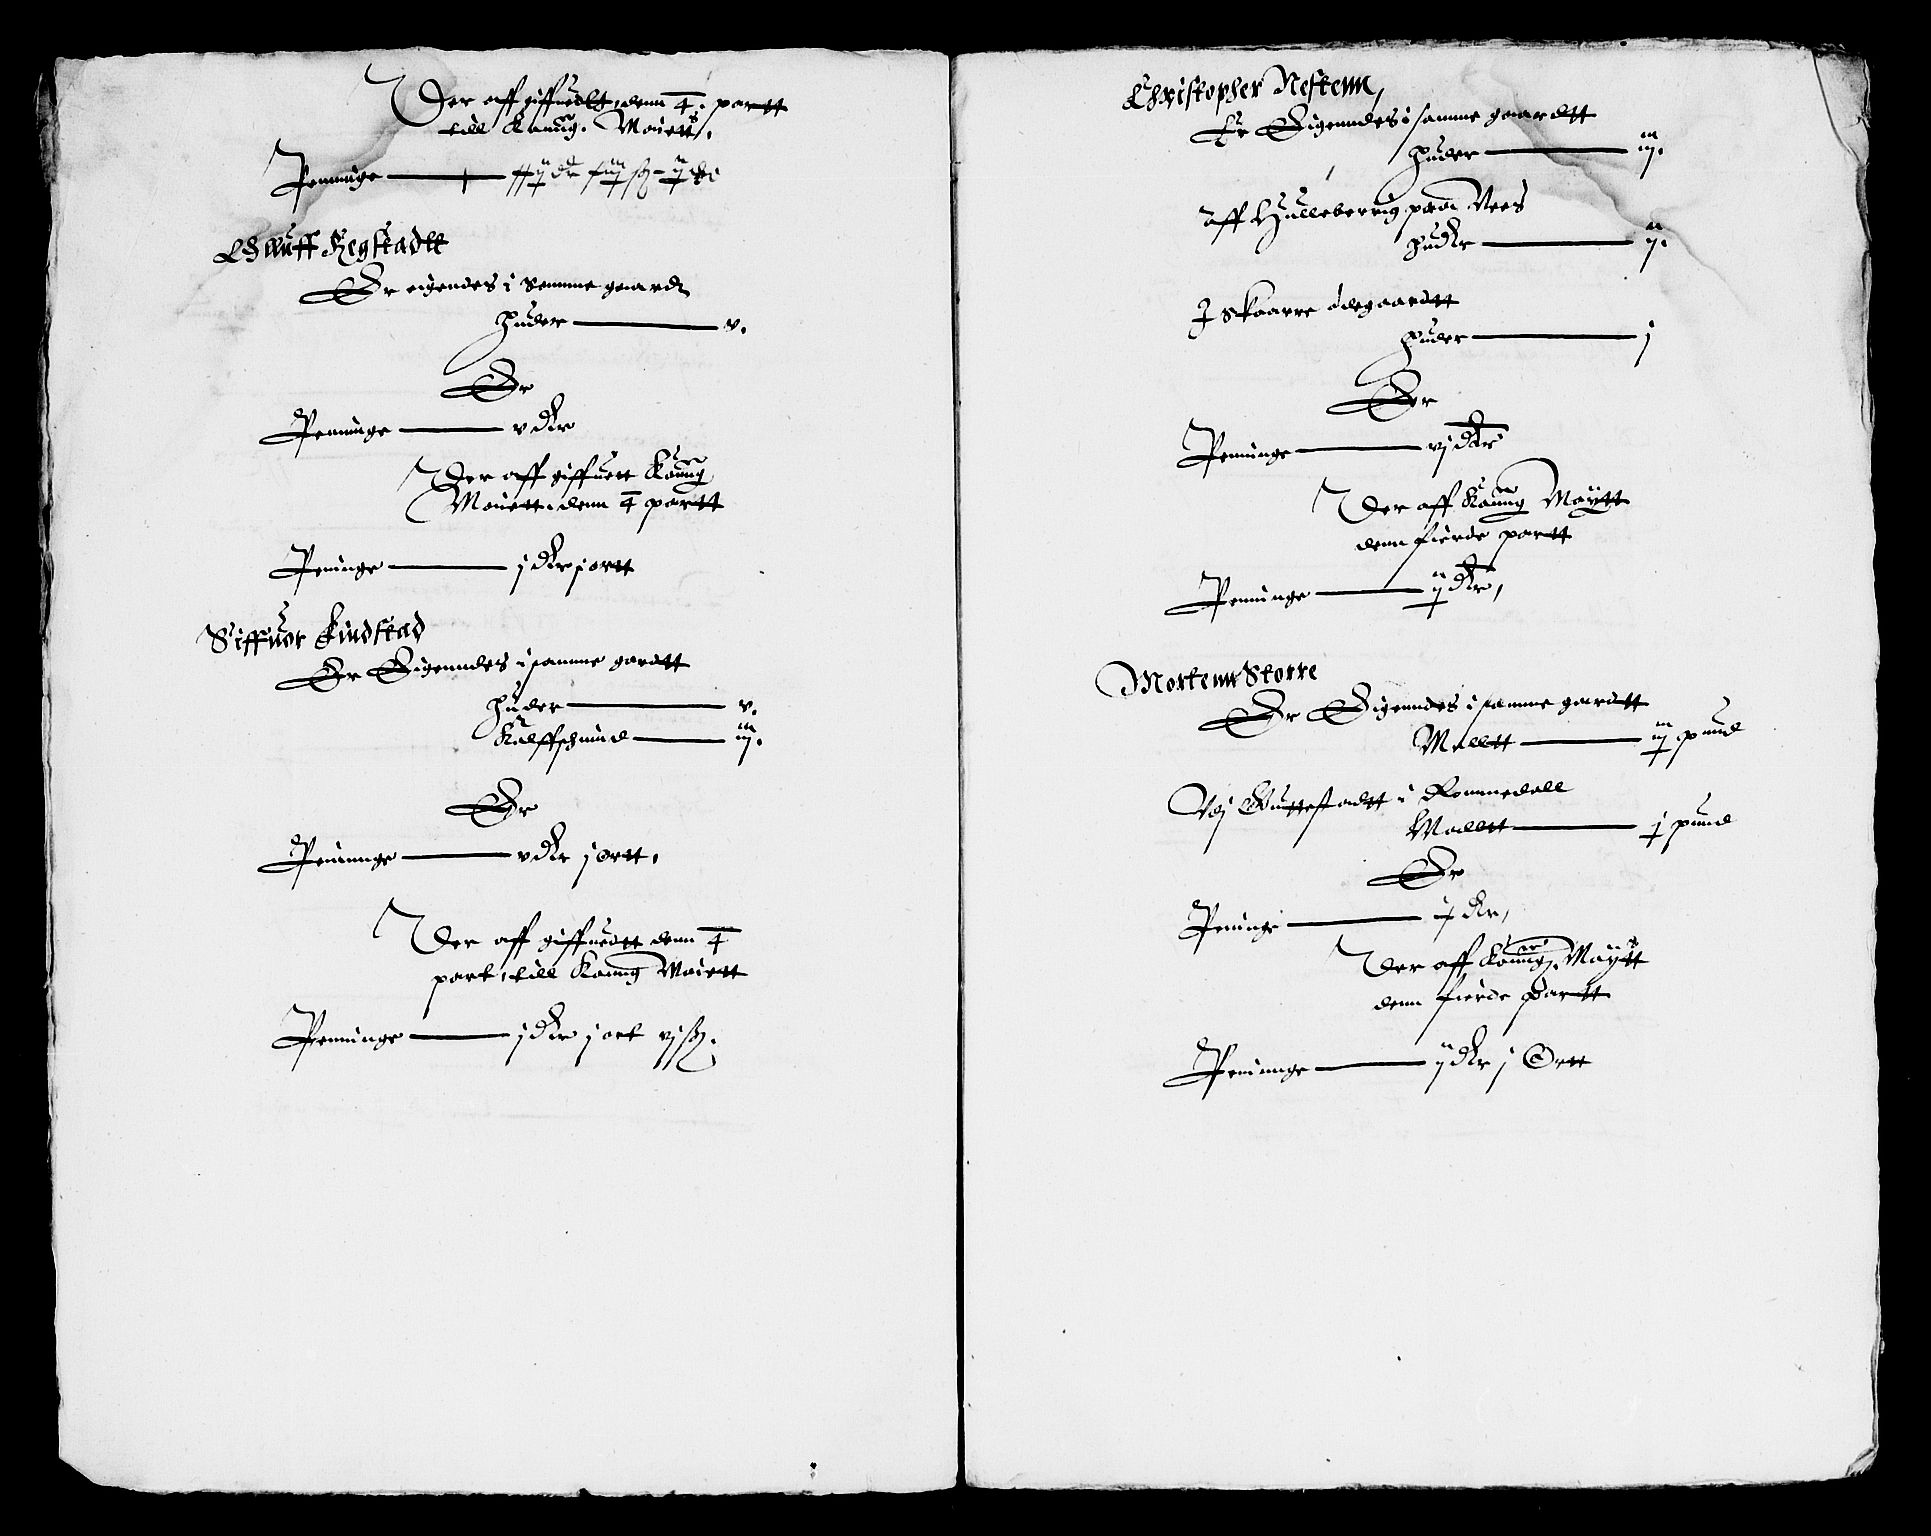 Der aff giffuedt, denn 4. partt
till Konng. Maiett.
Penninge
Oluff Regstadtt
Er eigendes i samme gaard
Huder — v.
Er
Penninge — v dlr
Der aff giffuett Konng
Maiett. denn 4 partt
Peninge — j dlr j ortt
Siffuor Findstad
Er Eigenndes i samme gardtt
Huder — v.
Kalffschinnd — iij.
Er
Peninnge — v dlr j ortt,
Der aff giffuedtt denn 4
part, till Konng Maiett
Penninge — j dlr j ort vj ß.
Christopher Nestenn,
Er Eigenndes i samme gaardtt
Huder — iij.
Aff Hulleberrig paa Nees
Huder — ij.
J Skaarre ødegaardtt
Huder — j
Er
Penninge — vj dlr
Der aff Konng Maytt
denn fierde partt
Penninge — ij dlr,
Mortenn Storre
Er Eigenndes i samme gardtt
Malltt — iij pund
Vdj Guttestadtt i Rommedall
Malltt — j pund
Er
Peninge — dlr,
Der aff Konng. Maytt
denn fierde Partt
Peninnge — ij dlr j Ortt